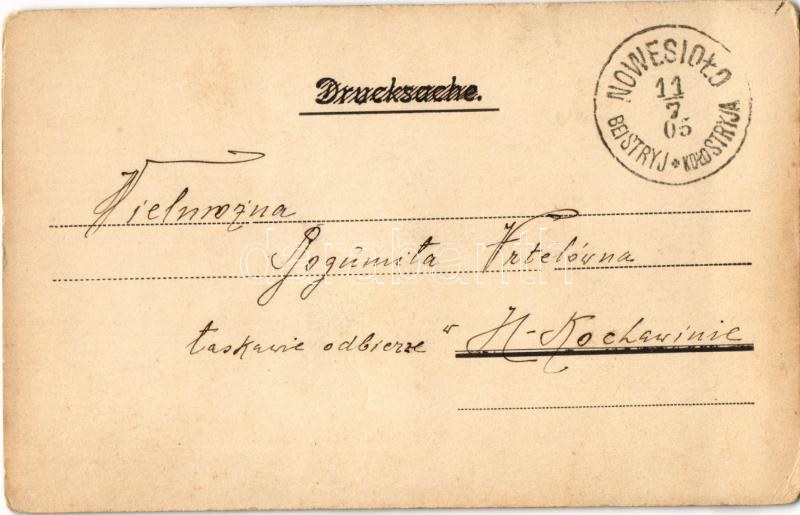 Drucksache.
NOWESIOŁO
11
7
05
BEI STRYJ * KOŁO STRYJA
Wielmożna
Bogumiła Vrtelówna
łaskawie odbierze w H-Kochawinie
darabanth